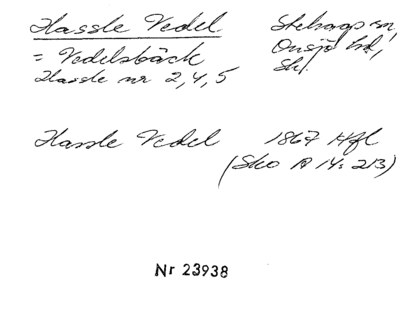 Hassle Vedel Stehags sn,
= Vedelsbäck Onsjö hd,
Hassle nr 2,4,5 Sk.
Hassle Vedel 1867 Hfl
(Sko A 14: 213)
Nr 23938